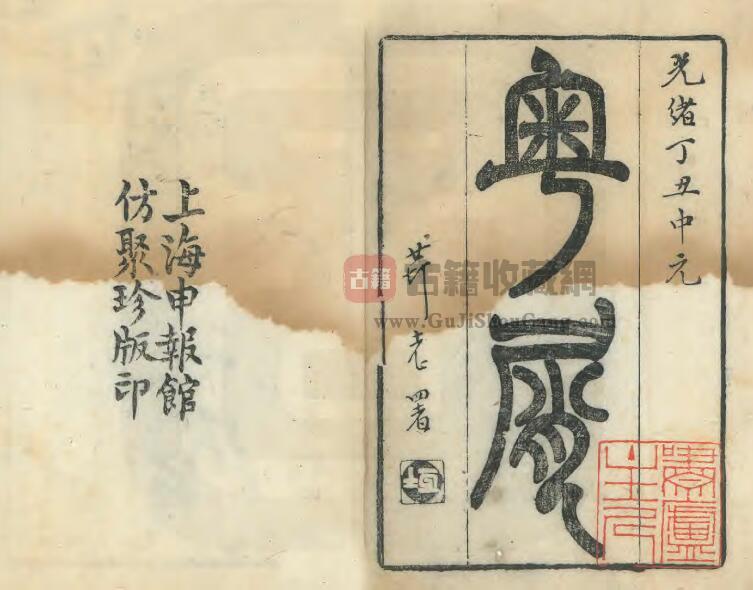 光緒丁丑中元
粵屑
老署
垣
主人
上海申報館
仿聚珍版印
古籍
古籍收藏網
www.GuJiShouCang.com